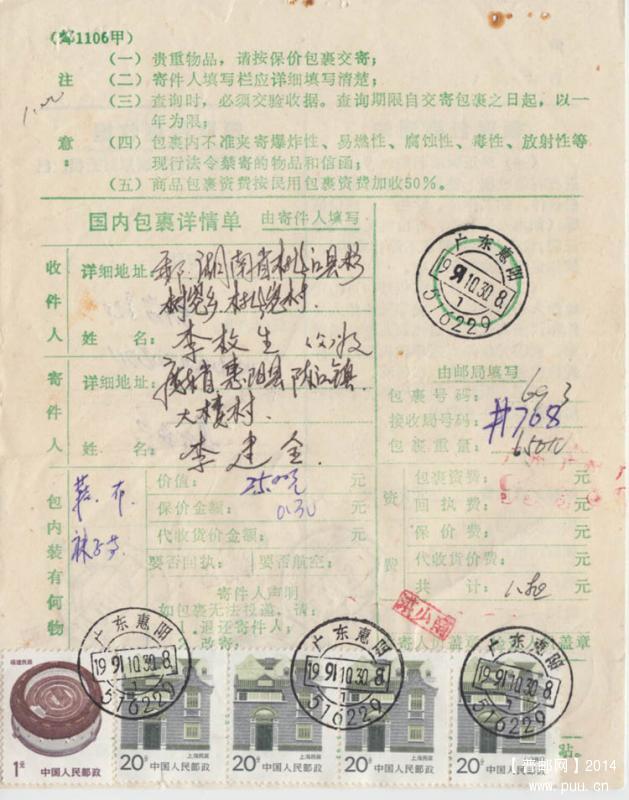 (邮1106甲)
注意：
(一) 贵重物品，请按保价包裹交寄；
(二) 寄件人填写栏应详细填写清楚；
(三) 查询时，必须交验收据。查询期限自交寄包裹之日起，以一
年为限；
(四) 包裹内不准夹寄爆炸性、易燃性、腐蚀性、毒性、放射性等
现行法令禁寄的物品和信函；
(五) 商品包裹资费按民用包裹资费加收50%。
1.00
国内包裹详情单 由寄件人填写
收件人
详细地址：湖南省
姓 名：李枚生 收
寄件人
详细地址：惠阳县陈江镇
大楼村.
姓 名：李建全
广东惠阴
1991.10.30.8
1
516229
由邮局填写
包裹号码：693
接收局号码：#768
包裹重量：6500
包内装有何物
价值：25.00元
保价金额：0.30 元
代收货价金额： 元
要否回执： 要否航空：
寄件人声明
如包裹无法投递，请：
1.退还寄件人；
改寄：
资费
包裹资费： 元
回执费： 元
保价费： 元
代收货价费： 元
共 计： 元
盖章
广东惠阴
1991.10.30.8
1
516229
广东惠阴
1991.10.30.8
1
516229
广东惠阴
1991.10.30.8
1
516229
福建民居
1元 中国人民邮政
上海民居
20分 中国人民邮政
上海民居
20分 中国人民邮政
上海民居
20分 中国人民邮政
20分 中国人民邮政
站.
【普邮网】2014
www.puu.cn